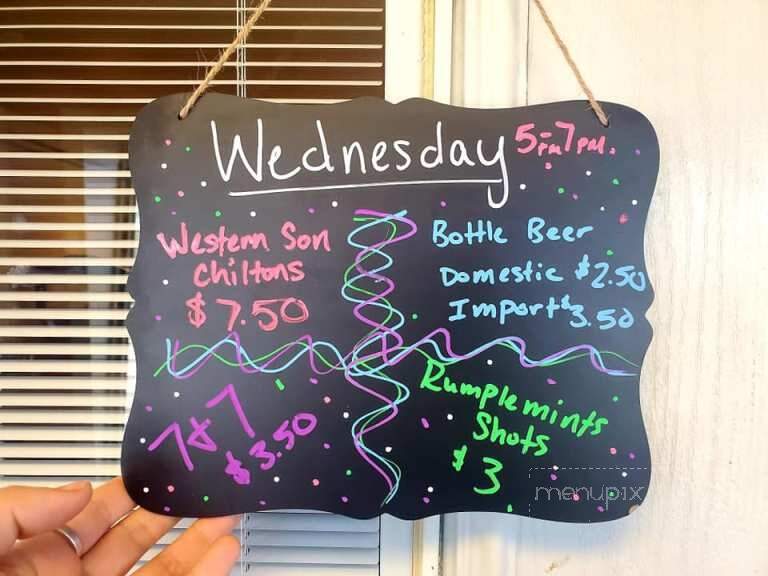 Wednesday 5pm-7pm.
Western Son
Chiltons
$7.50
Bottle Beer
Domestic $2.50
Import $3.50
7&7
$3.50
Rumplemints
Shots
$3
menupix